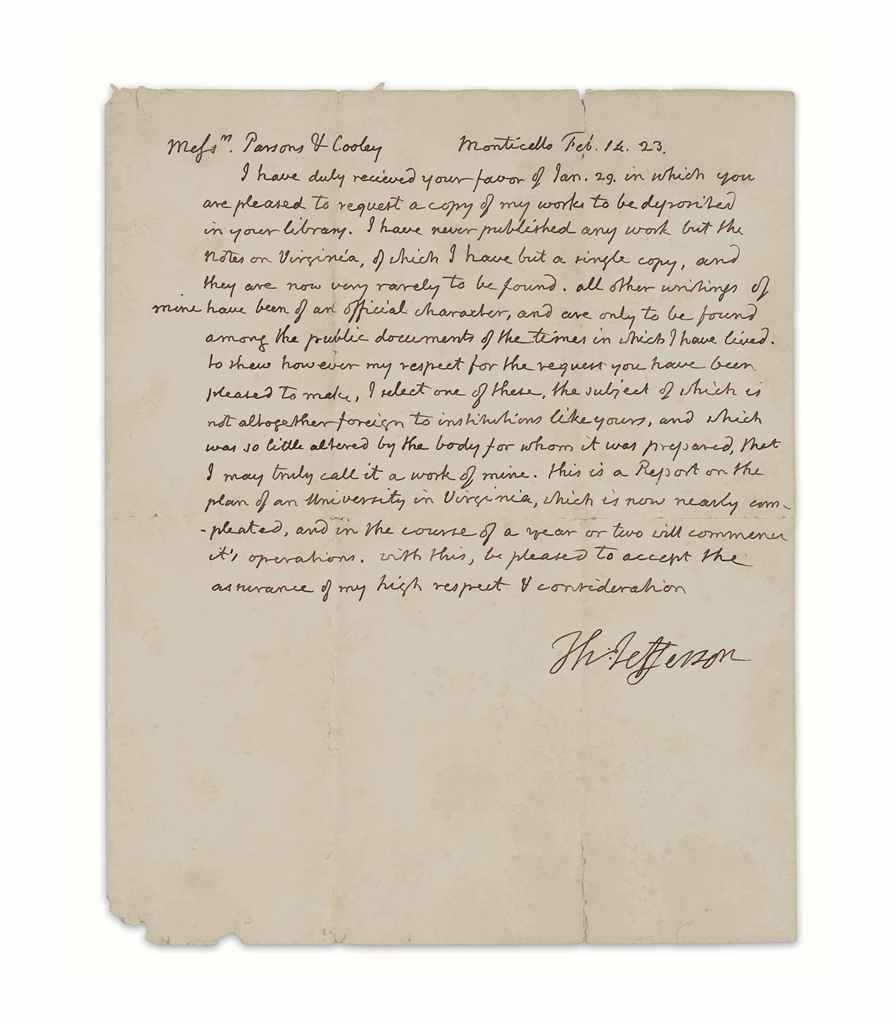 Messrs. Parsons & Cooley Monticello Feb. 14. 23.
I have duly recieved your favor of Jan. 29. in which you
are pleased to request a copy of my works to be deposited
in your library. I have never published any work but the
Notes on Virginia, of which I have but a single copy, and
they are now very rarely to be found. all other writings of
mine have been of an official character, and are only to be found
among the public documents of the times in which I have lived.
to shew however my respect for the request you have been
pleased to make, I select one of these, the subject of which is
not altogether foreign to institutions like yours, and which
was so little altered by the body for whom it was prepared, that
I may truly call it a work of mine. this is a Report on the
plan of an University in Virginia, which is now nearly com-
-pleated, and in the course of a year or two will commence
it's operations. with this, be pleased to accept the
assurance of my high respect & consideration
Th: Jefferson